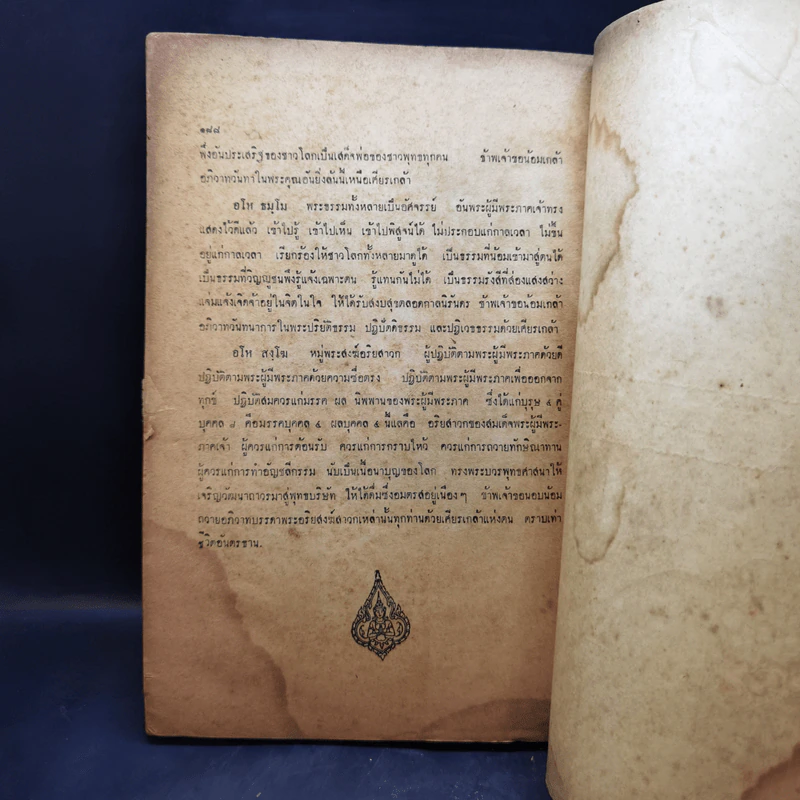 ๑๙๘
พึ่งอันประเสริฐของชาวโลกเป็นเสด็จพ่อของชาวพุทธทุกคน ข้าพเจ้าขอน้อมเกล้า
อภิวาทวันทาในพระคุณอันยิ่งล้นนี้เหนือเศียรเกล้า
อโห ธมฺโม พระธรรมทั้งหลายเป็นอัศจรรย์ อันพระผู้มีพระภาคเจ้าทรง
แสดงไว้ดีแล้ว เข้าไปรู้ เข้าไปเห็น เข้าไปพิสูจน์ได้ ไม่ประกอบแก่กาลเวลา ไม่ขึ้น
อยู่แก่กาลเวลา เรียกร้องให้ชาวโลกทั้งหลายมาดูได้ เป็นธรรมที่น้อมเข้ามาสู่ตนได้
เป็นธรรมที่วิญญูชนพึงรู้แจ้งเฉพาะตน รู้แทนกันไม่ได้ เป็นธรรมรังสีที่ส่องแสงสว่าง
แจ่มแจ้งเจิดจ้าอยู่ในจิตในใจ ให้ได้รับสงบสุขตลอดกาลนิรันดร ข้าพเจ้าขอน้อมเกล้า
อภิวาทวันทนาการในพระปริยัติธรรม ปฏิบัติธรรม และปฏิเวธธรรมด้วยเศียรเกล้า
อโห สงฺโฆ หมู่พระสงฆ์อริยสาวก ผู้ปฏิบัติตามพระผู้มีพระภาคด้วยดี
ปฏิบัติตามพระผู้มีพระภาคด้วยความซื่อตรง ปฏิบัติตามพระผู้มีพระภาคเพื่อออกจาก
ทุกข์ ปฏิบัติสมควรแก่มรรค ผล นิพพานของพระผู้มีพระภาค ซึ่งได้แก่บุรุษ ๔ คู่
บุคคล ๘ คือมรรคบุคคล ๔ ผลบุคคล ๔ นี้แลคือ อริยสาวกของสมเด็จพระผู้มีพระ-
ภาคเจ้า ผู้ควรแก่การต้อนรับ ควรแก่การกราบไหว้ ควรแก่การถวายทักษิณาทาน
ผู้ควรแก่การทำอัญชลีกรรม นับเป็นเนื้อนาบุญของโลก ทรงพระบวรพุทธศาสนาให้
เจริญวัฒนาถาวรมาสู่พุทธบริษัท ให้ได้ดื่มซึ่งอมตรสอยู่เนืองๆ ข้าพเจ้าขอนอบน้อม
ถวายอภิวาทบรรดาพระอริยสงฆ์สาวกเหล่านั้นทุกท่านด้วยเศียรเกล้าแห่งตน ตราบเท่า
ชีวิตอันตรธาน.